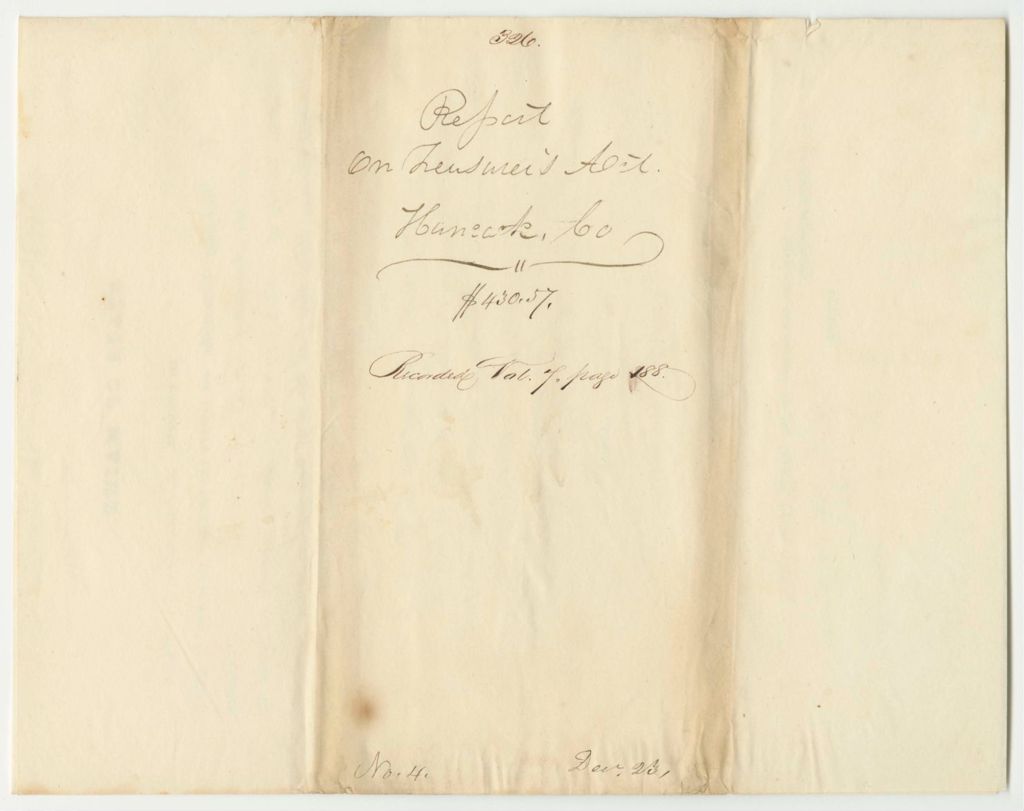 326.
Report
On Treasurer's Act.
Hancock, Co
$430.57.
Recorded Vol. 7. page 188.
No. 4.
Dec. 23,